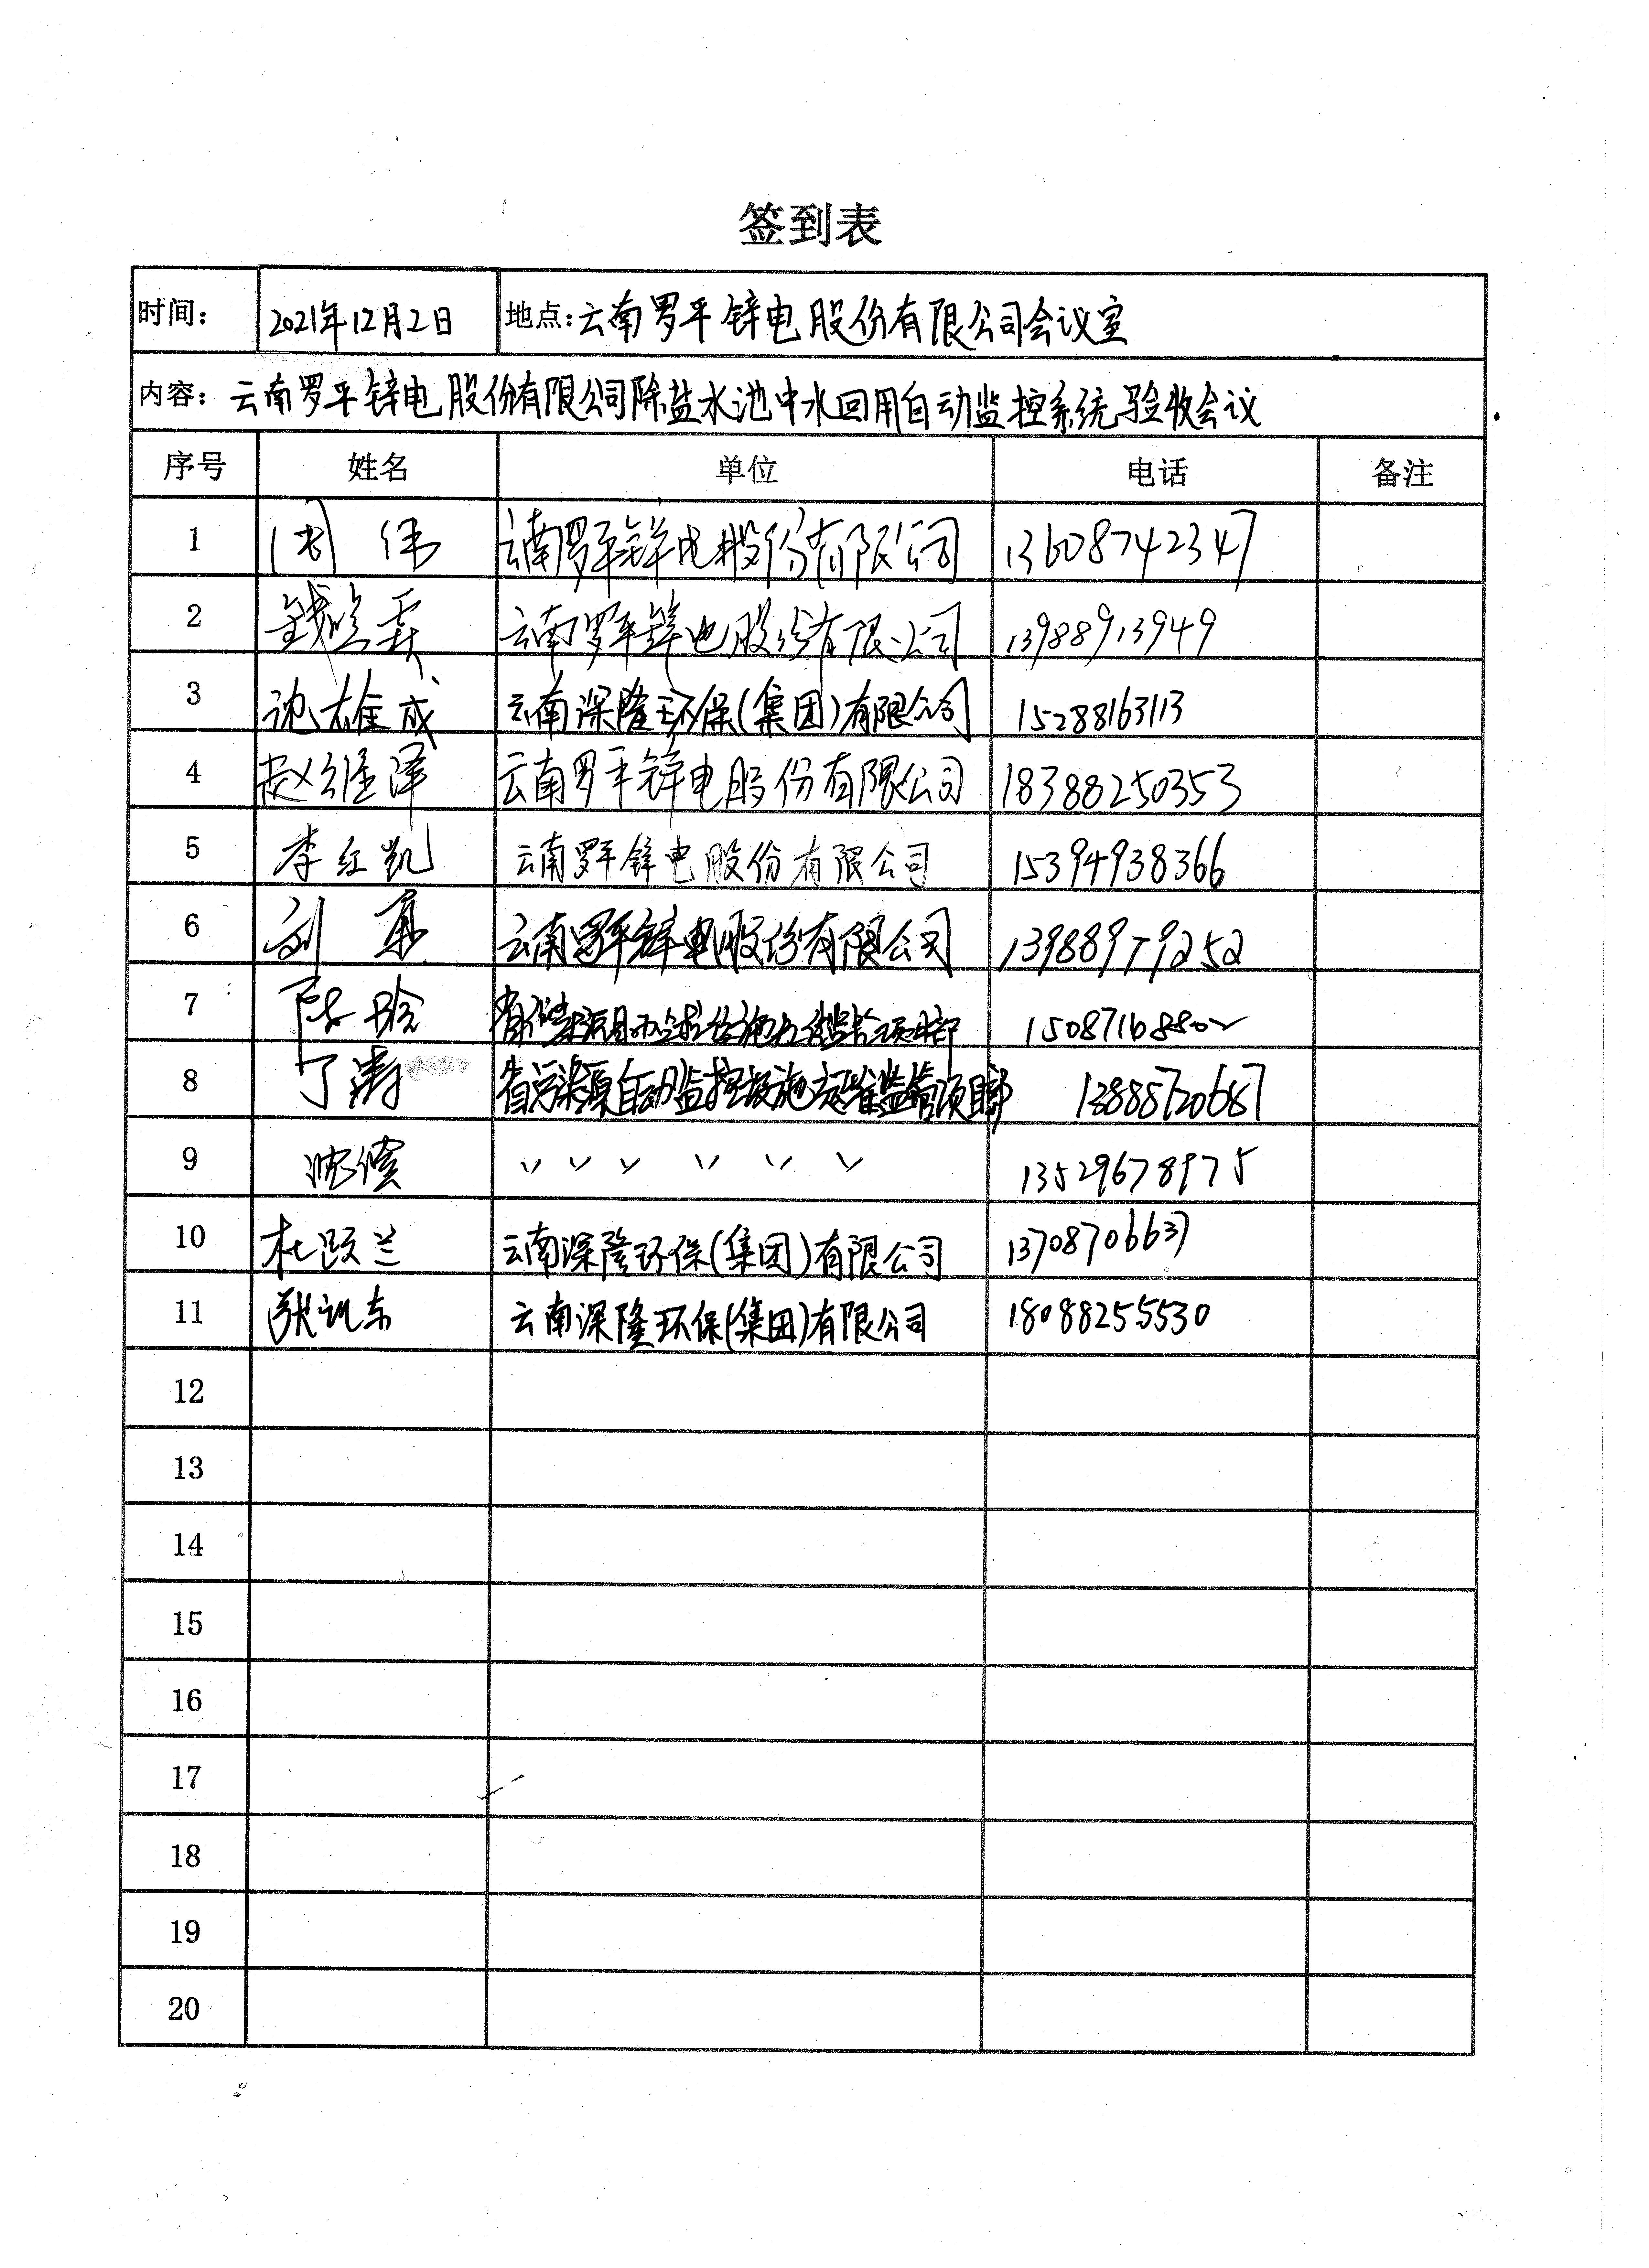 签到表
时间： 2021年12月2日 地点：云南罗平锌电股份有限公司会议室
内容：云南罗平锌电股份有限公司除盐水池中水回用自动监控系统验收会议
序号 姓名 单位 电话 备注
1 周伟 云南罗平锌电股份有限公司 13608742347
2 云南罗平锌电股份有限公司 13988913949
3 云南深隆环保(集团)有限公司 15288163113
4 赵维泽 云南罗平锌电股份有限公司 18388250353
5 李红凯 云南罗平锌电股份有限公司 15394938366
6 云南罗平锌电股份有限公司 13988979252
7 15087168802
8 丁涛 省污染源自动监控设施运维监管项目部 13888720687
9 〃 〃 〃 〃 〃 〃 13529678975
10 杜跃兰 云南深隆环保(集团)有限公司 13708706637
11 云南深隆环保(集团)有限公司 18088255530
12
13
14
15
16
17
18
19
20